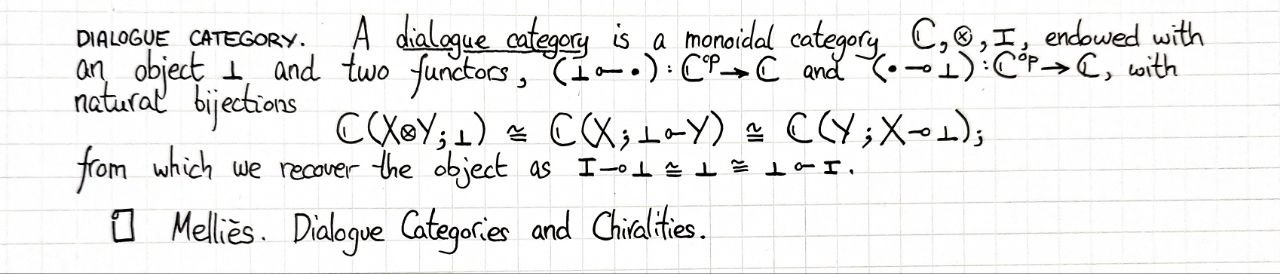 DIALOGUE CATEGORY. A dialogue category is a monoidal category ℂ,⊗,I, endowed with
an object ⊥ and two functors, (⊥⟜•):ℂᵒᵖ→ℂ and (•⊸⊥):ℂᵒᵖ→ℂ, with
natural bijections
ℂ(X⊗Y;⊥) ≅ ℂ(X;⊥⟜Y) ≅ ℂ(Y;X⊸⊥);
from which we recover the object as I⊸⊥ ≅ ⊥ ≅ ⊥⟜I.
▯ Melliès. Dialogue Categories and Chiralities.